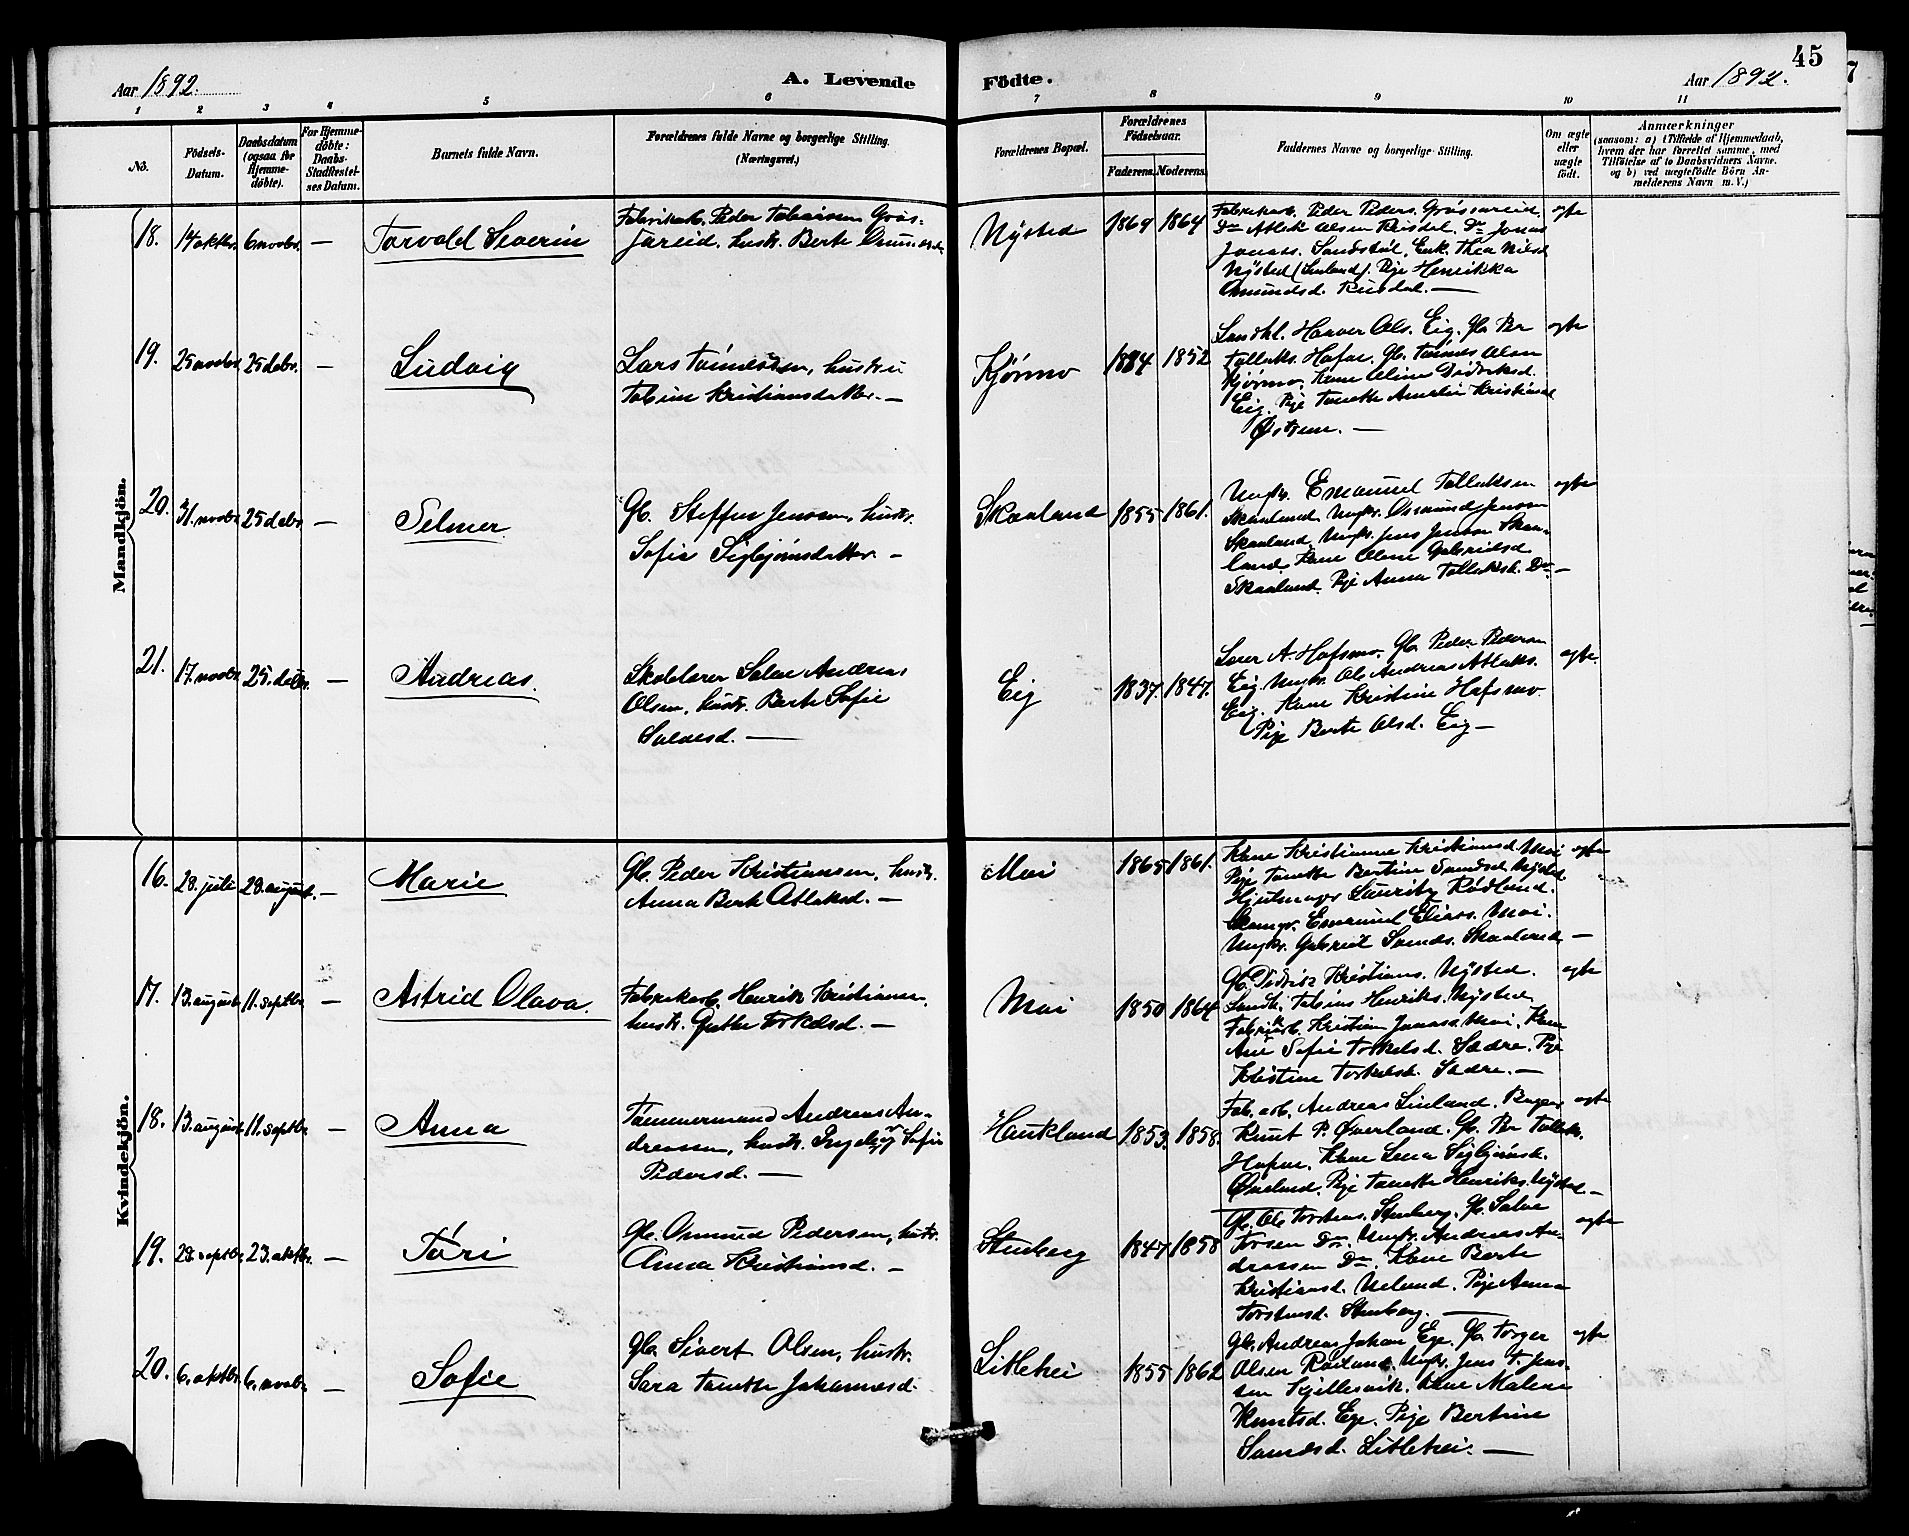 45
Aar 1892.
A. Levende
Födte.
Aar 1892.
1 2 3 4 5 6 7 8 9 10 11
No.
Födsels-
Datum.
Daabsdatum
(ogsaa for
Hjemme-
döbte).
For Hjemme-
döbte:
Daabs-
Stadfestel-
ses Datum.
Barnets fulde Navn.
Forældrenes fulde Navne og borgerlige Stilling.
(Næringsvei.)
Forældrenes Bopæl.
Forældrenes
Födselsaar.
Faderens. Moderens.
Faddernes Navne og borgerlige Stilling.
Om ægte
eller
uægte
födt.
Anmærkninger
(saasom: a) i Tilfælde af Hjemmedaab,
hvem der har forrettet samme, med
Tilföielse af to Daabsvidners Navne.
og b) ved uægtefödte Börn An-
melderens Navn m. V.)
Mandkjön.
18. 14 oktbr. 6 novbr. — Torvald Severin
Fabrikarb. Peder Tobiassen Gros-
hustr. Berte
Nysted 1869 1864
Fabrikarb. Peder Peders.
Do Atlak Olsen Do Jonas
Jonass. Sandstøl, Enk. Thea Nilsd
Nysted Pige Henrikka
Omundsd.
egte
19. 25 novbr. 25 debr. — Ludvig
Lars Tønnessen, hustru
Kristiansdatter. —
Kjørmo 1852
Eig, Gb. Per
Tolleks. Hafne, Gb. Tønnes Olsen
Kjørmo. Kone Oline Didriksd.
Eig. Pige Tonette Amalie Kristiansd
—
egte
20. 31. novbr. 25 debr. — Selmer
Gb. Steffen Jensen, hustr.
Sofie Sigbjørnsdatter —
Skaaland 1855 1861.
Ungkr. Emanuel Tolleksen
Skaaland. Ungkr. Osmund Jensen
Skaaland, Ungkr. Jens Jensen Skaa-
land. Kone Oline Gabrielsd
Skaaland. Pige Anna Tolleksd. Do —
egte
21. 17. novbr. 25. debr. — Andreas.
Skolelærer Salve Andreas
Olsen, hustr. Berte Sofie
Salvesd. —
Eig 1837. 1847.
A. Hafsmo. Gb. Peder Pedersen
Eig. Ungkr. Ole Andreas Atlaks.
Eig. Kone Kristine Hafsmo.
Pige Berte Olsd. Eig —
egte.
Kvindekjön.
16. 28. juli 28. august. — Marie
Gb. Peder Kristiansen, hustr.
Anna Berte Atlaksd. —
Moi 1865 1861.
Kone Kristianne Kristiansd. Moi
Pige Tonette Bertine Nysted
Hjulmager Lauritz Rødland.
Emanuel Eliass. Moi.
Ungkr. Gabriel Skaaland —
egte
17. 13. august 11. septbr — Astrid Olava.
Fabrikarb. Henrik Kristiansen,
hustr. Torkelsd. —
Moi 1850 1864
Gb. Didrik Kristians. Nysted.
Tobias Henriks. Nysted
Fabrikarb. Kristian Jonass. Moi, Kone
Ane Sofie Torkelsd. Sædre. Pige
Kristine Torkelsd. Sædre. —
egte
18. 13. august 11. septbr. — Anna
Tømmermand Andreas An-
dreassen, hustr. Ingeborg Sofie
Pedersd. —
Haukland 1853. 1858.
Fab. arb. Andreas Linland.
Knut P. Øverland. Gb. Per Tolleks.
Hafne. Kone Lena Sigbjørnsd.
Øverland. Pige Tonette Henriks. Nysted —
egte
19. 28. septbr 23. oktbr. — Tøri
Gb. Osmund Pedersen, hustr.
Anna Kristiansd. —
Stenberg 1847 1858
Gb. Ole Torstens. Stenberg. Gb. Salve
Do. Ungkr. Andreas An-
dreassen Do. Kone Berte
Kristiansd. Ueland. Pige Anna
Torstensd. Stenberg. —
egte
20. 6. oktbr. 6. novbr — Sofie
Gb. Sivert Olsen, hustr.
Sara Tonette Johannesd.
Litlehei 1855 1862
Gb. Andreas Johan Ege. Gb. Torger
Olsen Ungkr. Jens T. Jens-
sen Kone Malene
Knutsd. Ege. Pige Bertine
Litlehei. —
egte